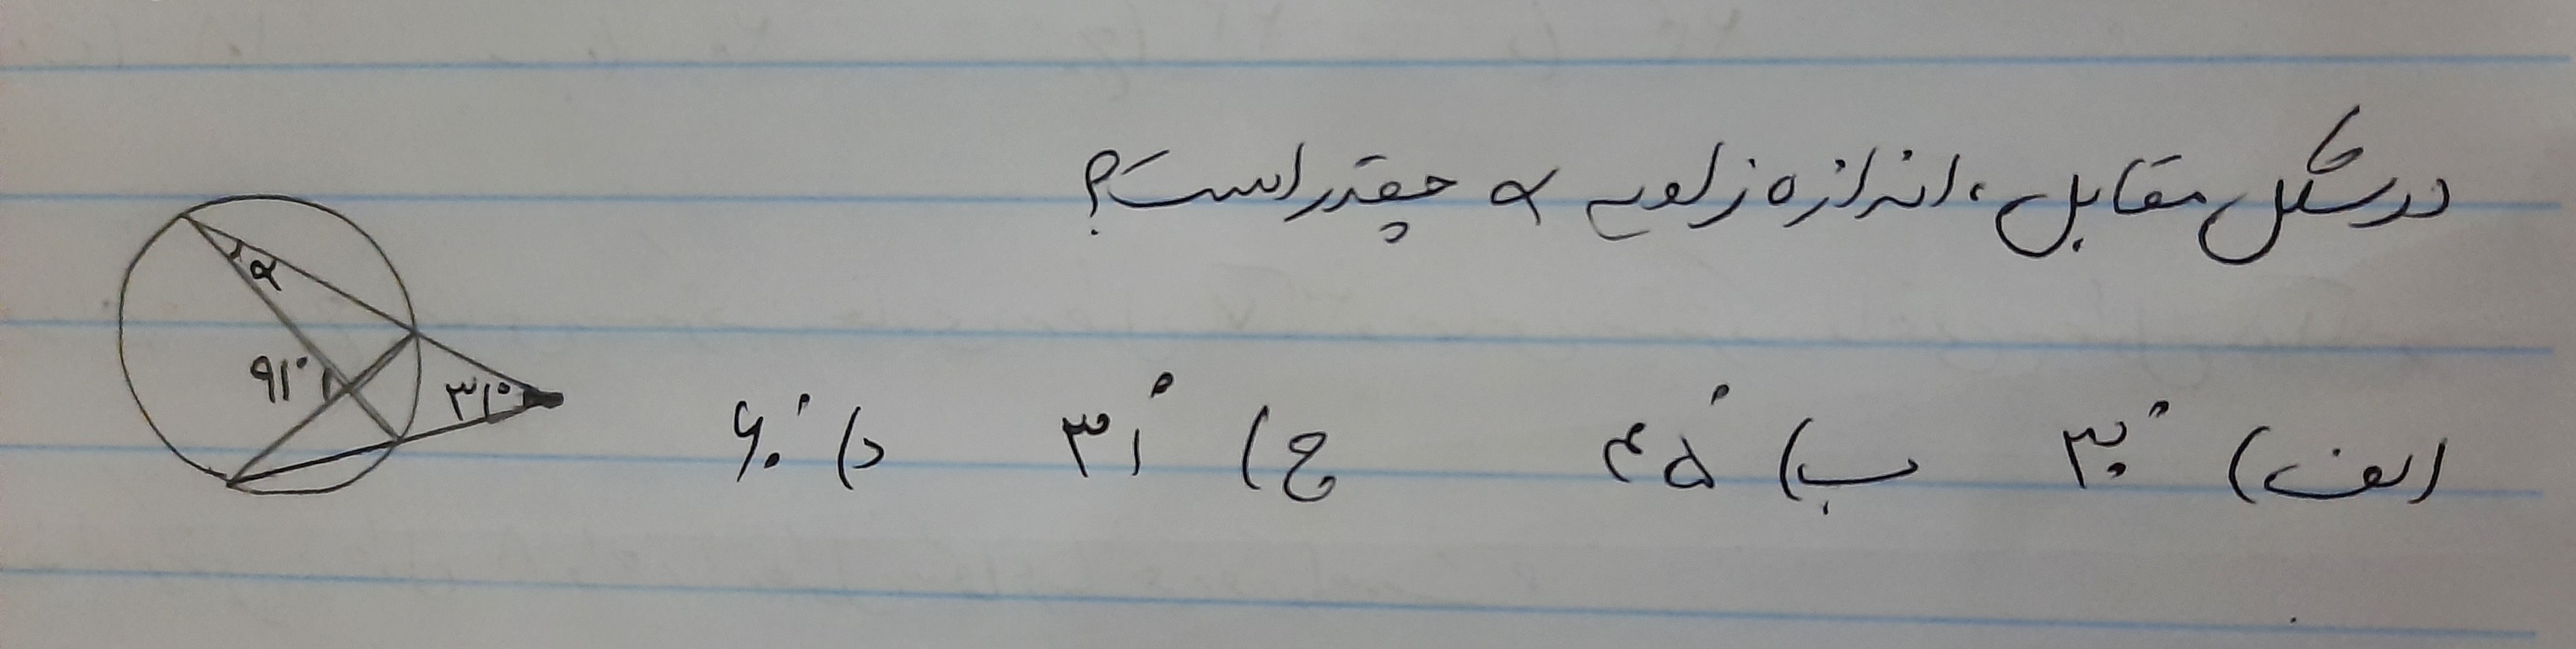 در شکل مقابل، اندازه زاویه α چقدر است؟
الف) ۳۰° ب) ۴۵° ج) ۳۱° د) ۶۰°
α
۹۱°
۳۱°